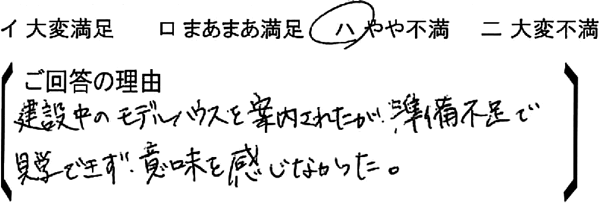 イ 大変満足 ロ まあまあ満足 ハ やや不満 ニ 大変不満
ご回答の理由
建設中のモデルハウスを案内されたが、準備不足で
見学できず、意味を感じなかった。